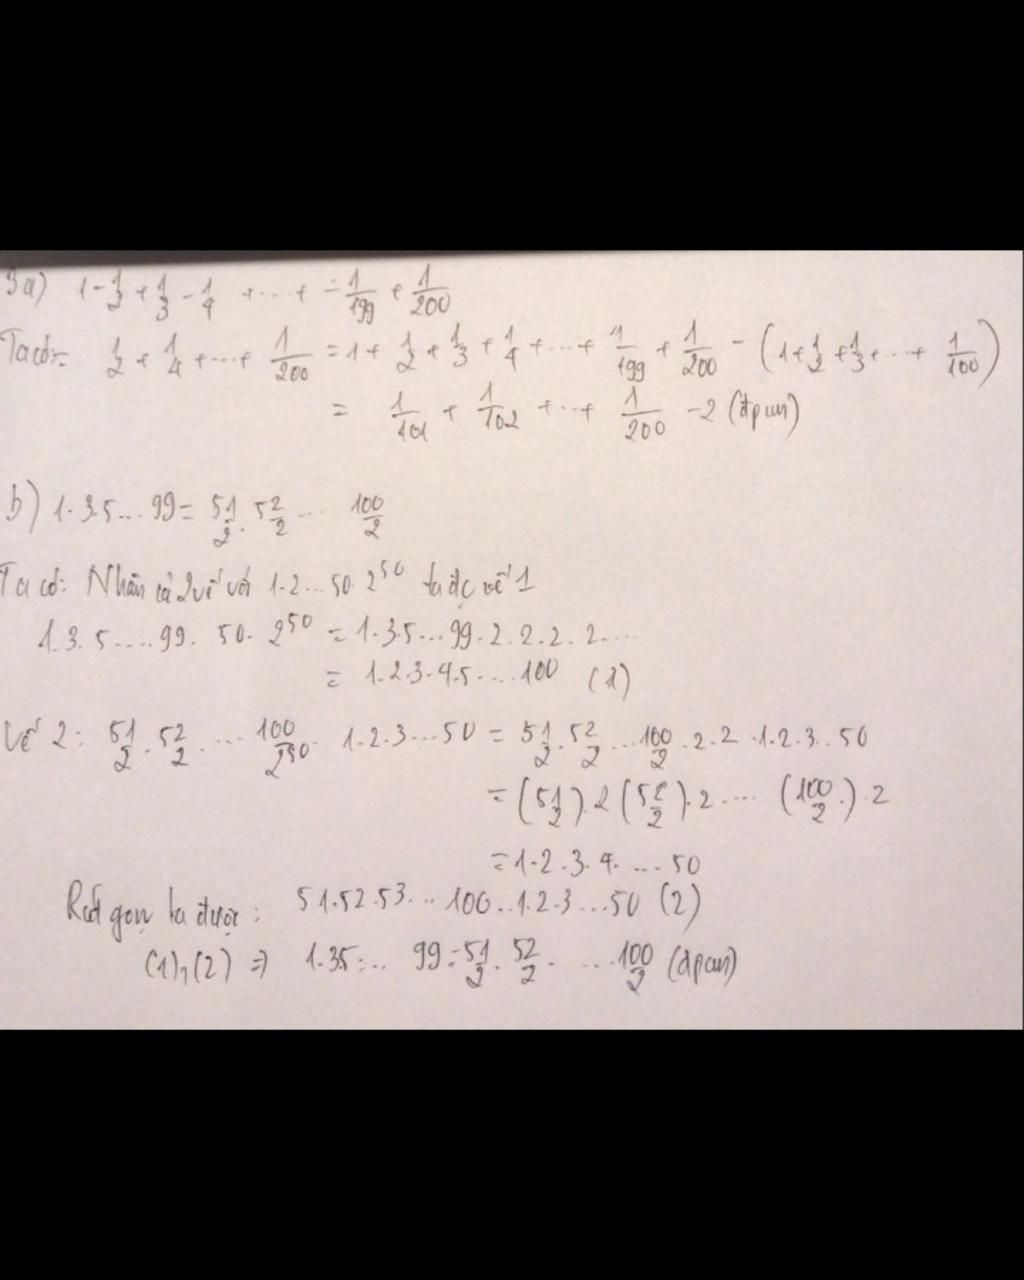 3a) 1 - 1/2 + 1/3 - 1/4 + ... + = 1/199 + 1/200
Ta có: 1/2 + 1/4 + ... + 1/200 = 1 + 1/2 + 1/3 + 1/4 + ... + 1/199 + 1/200 - (1 + 1/2 + 1/3 + ... + 1/100)
= 1/101 + 1/102 + ... + 1/200 - 2 (đpcm)
b) 1.3.5...99 = 51/2 . 52/2 ... 100/2
Ta có: Nhân cả 2 vế với 1.2...50.2^50 ta đc vế 1
1.3.5....99. 50. 2^50 = 1.3.5...99.2.2.2.2....
= 1.2.3.4.5....100 (1)
Vế 2: 51/2 . 52/2 .... 100/2^50 . 1.2.3...50 = 51/2 . 52/2 ... 100/2 .2.2 .1.2.3..50
= (51/2).2 (52/2).2 .... (100/2.).2
= 1.2.3.4. ...50
Rút gọn ta được: 51.52.53... 100..1.2.3...50 (2)
(1),(2) => 1.35... 99 = 51/2 . 52/2 . ...100/2 (đpcm)